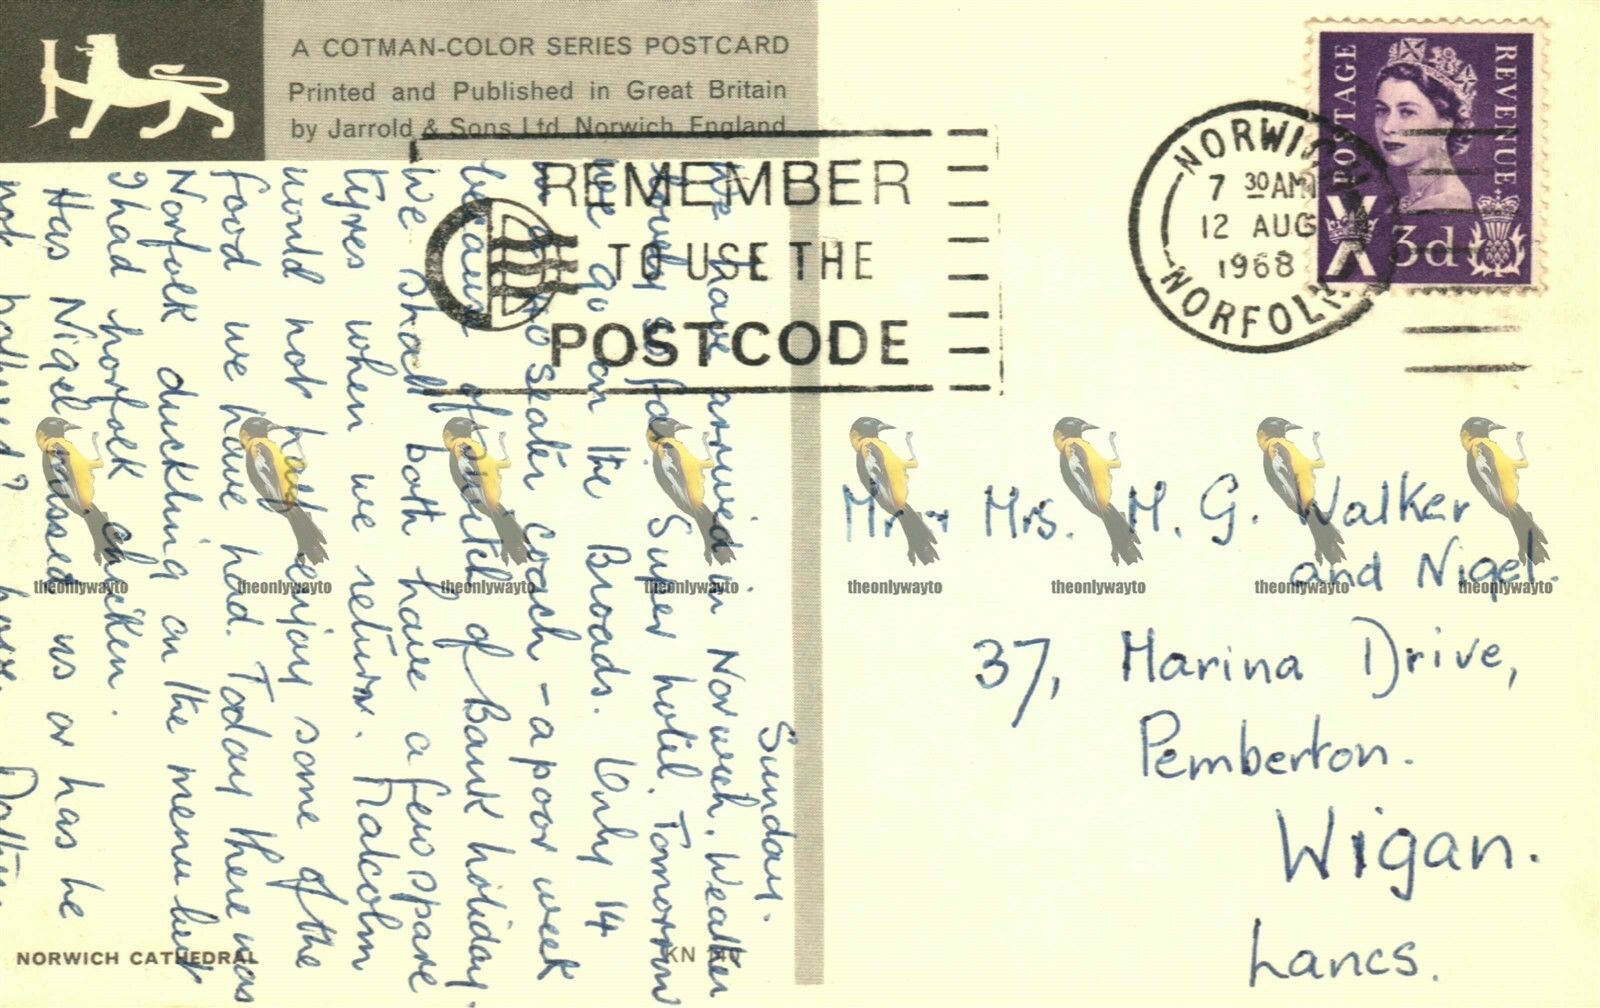 A COTMAN-COLOR SERIES POSTCARD
Printed and Published in Great Britain
by Jarrold & Sons Ltd. Norwich, England
REMEMBER
TO USE THE
POSTCODE
NORWICH
7 30AM
12 AUG
1968
NORFOLK
POSTAGE
REVENUE
3d
Sunday.
We have arrived in Norwich. Weather
lovely so far. Super hotel. Tomorrow
we go on the Broads. Only 14
seater coach - a poor week
because of switch of Bank holiday.
We shall both have a few spare
tyres when we return. Malcolm
would not half enjoy some of the
food we have had. Today there was
Norfolk duckling on the menu but
I had norfolk chicken.
Has Nigel missed us or has he
not noticed?
Mr + Mrs. M. G. Walker
and Nigel.
37, Marina Drive,
Pemberton.
Wigan.
Lancs.
NORWICH CATHEDRAL
KN
theonlywayto theonlywayto theonlywayto theonlywayto theonlywayto theonlywayto theonlywayto theonlywayto